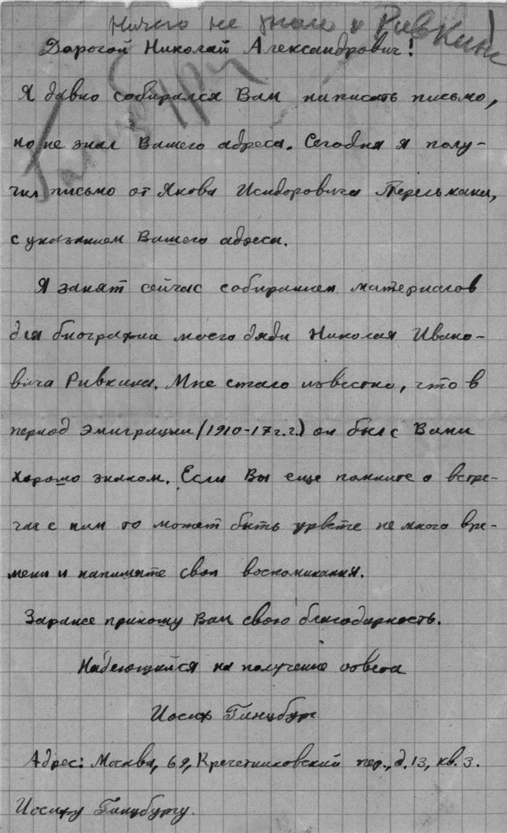 Ничего не знаю о Ривкине
Дорогой Николай Александрович!
Я давно собирался Вам написать письмо,
но не знал Вашего адреса. Сегодня я полу-
чил письмо от Якова Исидоровича Перельмана,
с указанием Вашего адреса.
Я занят сейчас собиранием материалов
для биографии моего дяди Николая Ивано-
вича Ривкина. Мне стало известно, что в
период эмиграции (1910-17 г.г.) он был с Вами
хорошо знаком. Если Вы еще помните о встре-
чах с ним то может быть урвете немного вре-
мени и напишите свои воспоминания.
Заранее приношу Вам свою благодарность.
Надеющийся на получение ответа
Иосиф Гинцбург
Адрес: Москва, 69, Кречетниковский пер., д. 13, кв. 3.
Иосифу Гинцбургу.